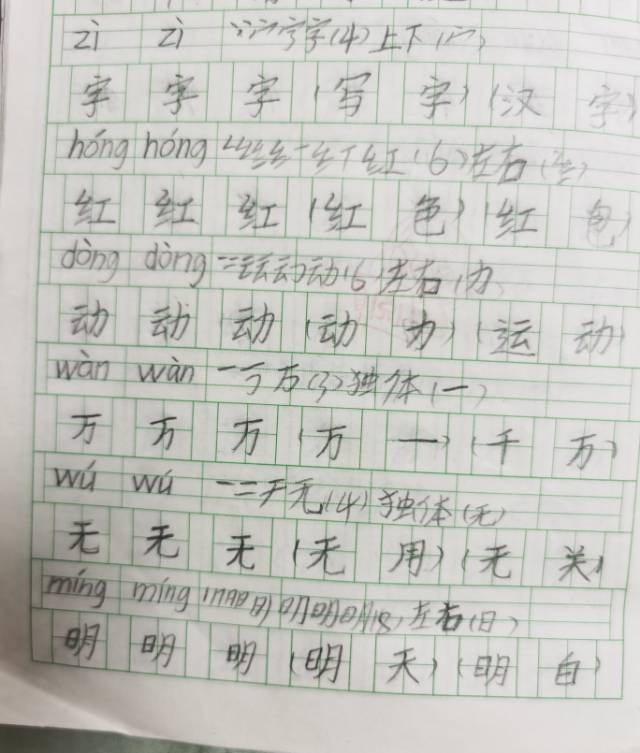 zì zì 字(4)上下(宀)
字 字 字 (写 字) (汉 字)
hóng hóng 红(6)左右(纟)
红 红 红 (红 色) (红 包)
dòng dòng 一二云云动动(6)左右(力)
动 动 动 (动 力) (运 动)
wàn wàn 一丂万(3)独体(一)
万 万 万 (万 一) (千 万)
wú wú 一二チ无(4)独体(无)
无 无 无 (无 用) (无 关)
míng míng 明(8)左右(日)
明 明 明 (明 天) (明 白)